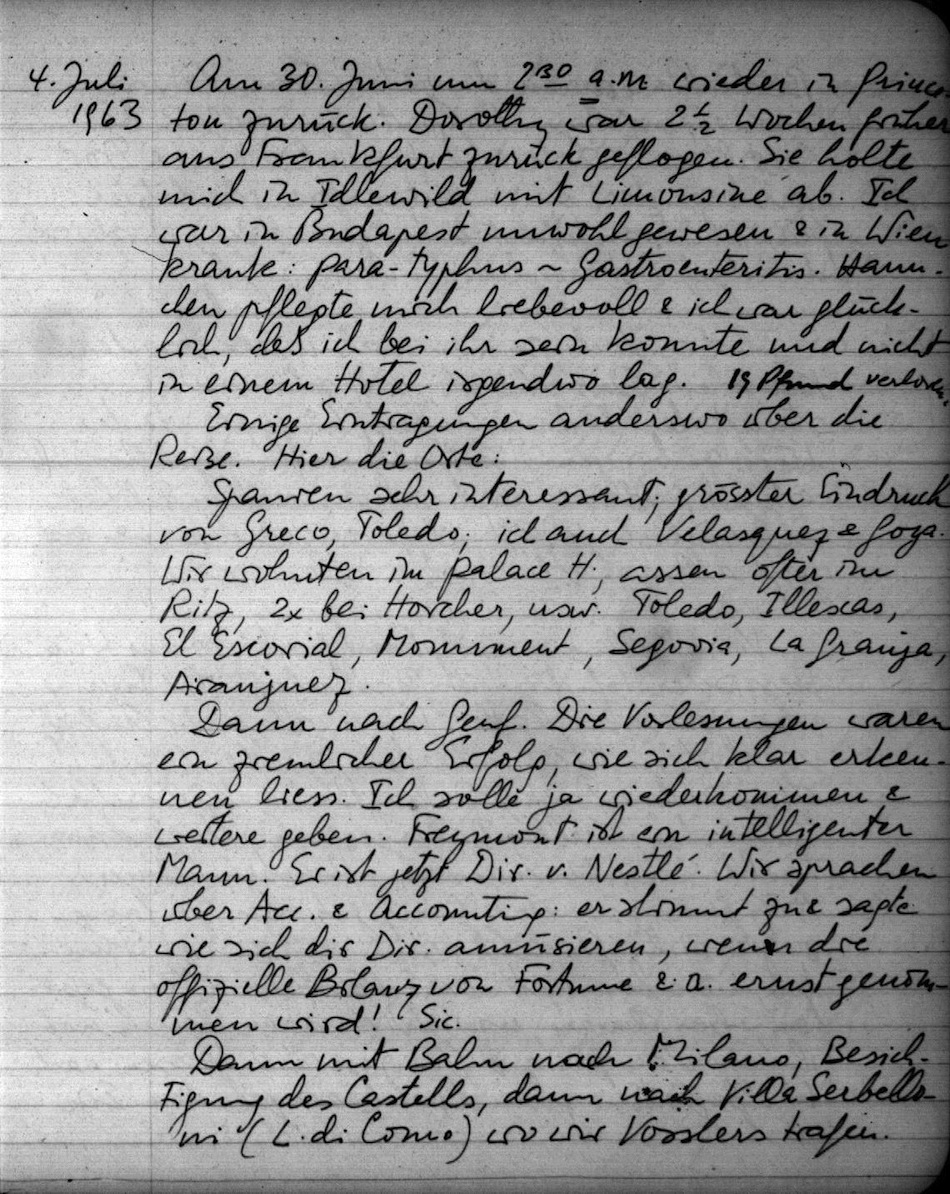 4. Juli Am 30. Juni um 2³⁰ a.m wieder in Prince-
1963 ton zurück. Dorothy war 2½ Wochen früher
aus Frankfurt zurück geflogen. Sie holte
mich in Idlewild mit Limousine ab. Ich
war in Budapest unwohl gewesen & in Wien
krank: para-typhus ~ Gastroenteritis. Hann-
chen pflegte mich liebevoll & ich war glück-
lich, daß ich bei ihr sein konnte und nicht
in einem Hotel irgendwo lag. 19 Pfund verloren.
Einige Eintragungen anderswo über die
Reise. Hier die Orte:
Spanien sehr interessant; grösster Eindruck
von Greco, Toledo; ich auch Velasquez & Goya.
Wir wohnten im Palace H., assen öfter im
Ritz, 2x bei Horcher, usw. Toledo, Illescas,
El Escorial, Monument, Segovia, La Granja,
Aranjuez.
Dann nach Genf. Die Vorlesungen waren
ein ziemlicher Erfolg, wie sich klar erken-
nen liess. Ich solle ja wiederkommen &
weitere geben. Freymont ist ein intelligenter
Mann. Er ist jetzt Dir. v. Nestlé. Wir sprachen
über Acc. & Accounting: er stimmt zu & sagte
wie sich die Dir. amüsieren, wenn die
offizielle Bilanz von Fortune & a. ernst genom-
men wird! Sic.
Dann mit Bahn nach Milano, Besich-
tigung des Castells, dann nach Villa Serbello-
ni (L. di Como) wo wir Vosslers trafen.